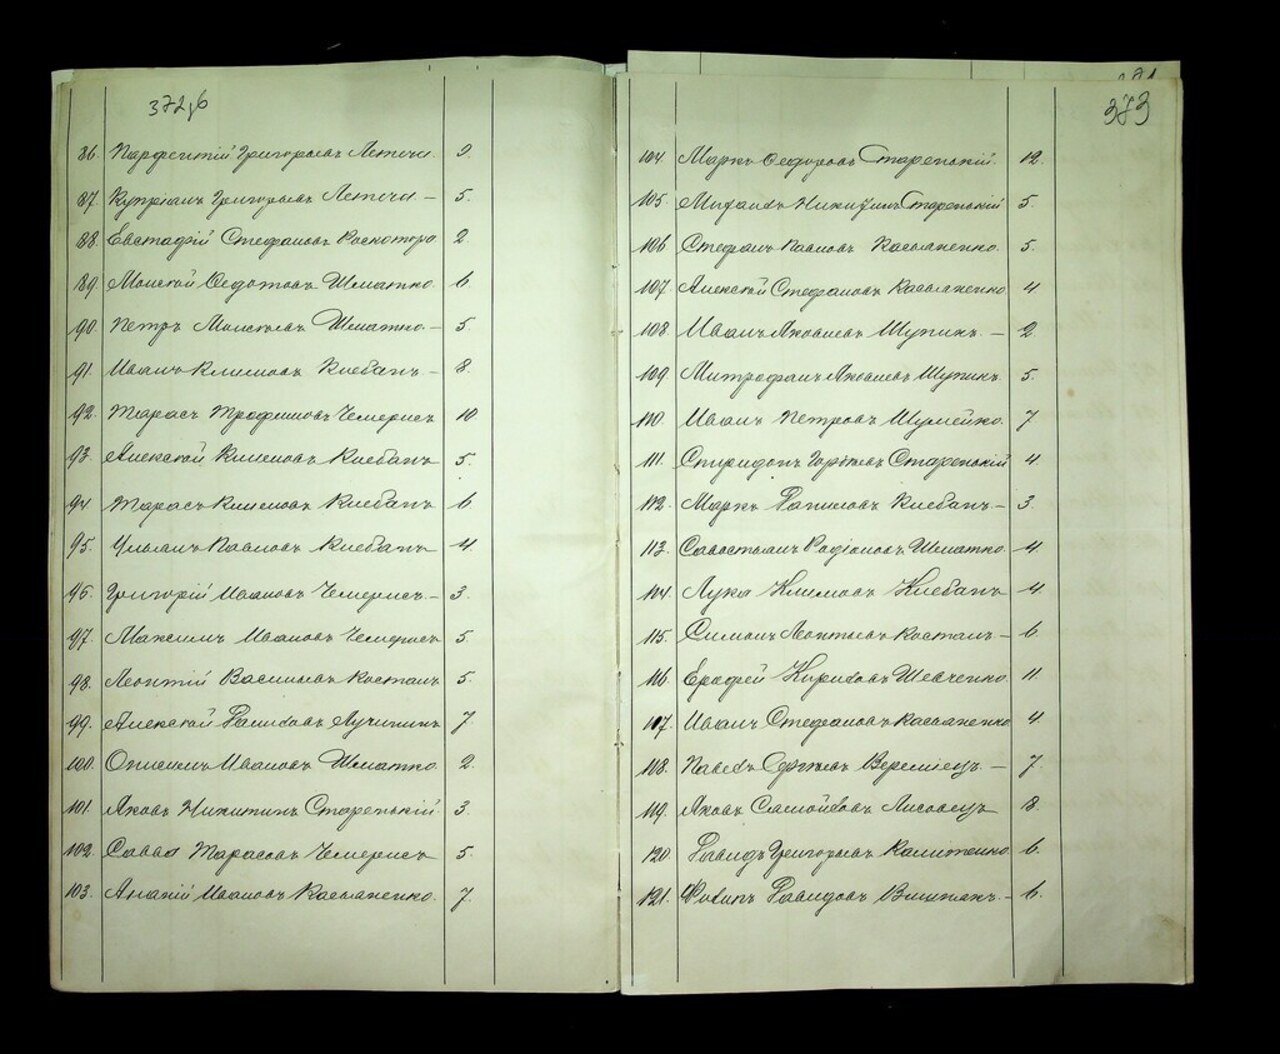 372об
86. Парфентій Григорьевъ Летючи. 2.
87. Купріанъ Григорьевъ Летючи — 5.
88. Евстафій Стефановъ 2.
89. Моисей Федотовъ Шматко. 6
90. Петръ Моисеевъ Шматко. — 5.
91. Иванъ Климовъ Клебанъ — 8.
92. Тарасъ Трофимовъ Чемерисъ 10
93. Алексѣй Климовъ Клебанъ 5.
94 Тарасъ Климовъ Клебанъ 6
95. Ульянъ Павловъ Клебанъ 4.
96. Григорій Ивановъ Чемерисъ — 3.
97. Максимъ Ивановъ Чемерисъ 5.
98. Леонтій Васильевъ Костанъ 5.
99. Алексѣй Даниловъ Лучининъ 7
100. Онисимъ Ивановъ Шматко. 2.
101. Яковъ Никитинъ Старенькій. 3
102. Савва Тарасовъ Чемерисъ 5.
103. Ананій Ивановъ Касьяненко. 7.
373
104. Марко Федоровъ Старенькій. 12.
105. Михаилъ Никитинъ Старенькій 5.
106 Стефанъ Павловъ Касьяненко. 5.
107. Алексѣй Стефановъ Касьяненко 4
108. Иванъ Яковлевъ Щупикъ. — 2
109. Митрофанъ Яковлевъ Щупикъ. 5.
110. Иванъ Петровъ Шумейко. 7
111. Спиридонъ Старенькій 4.
112. Марко Даниловъ Клебанъ — 3.
113. Савостьянъ Родіоновъ Шматко. 4.
104. Лука Климовъ Клебанъ 4.
115. Симонъ Леонтьевъ Костанъ — 6.
116 Ерофей Кириловъ Шевченко. 11.
107. Иванъ Стефановъ Касьяненко 4.
108. Павелъ Сергѣевъ Веремѣецъ — 7.
119. Яковъ Самойловъ Лисовецъ 8.
120. Давидъ Григорьевъ Калитенко. 6.
121. Филипъ Давидовъ — 6.